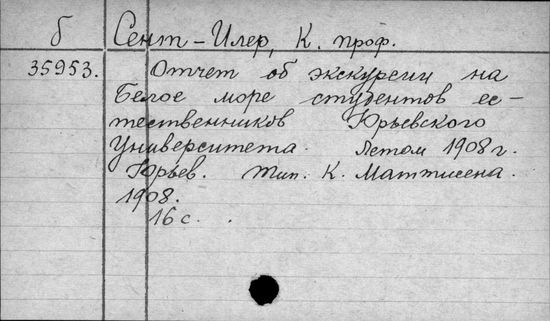 Б Сент-Илер, К. проф.
35953. Отчет об экскурсии на
Белое море студентов ес-
тественников Юрьевского
Университета. Летом 1908 г.
Юрьев. Тип. К. Маттисена.
1908.
16 с.